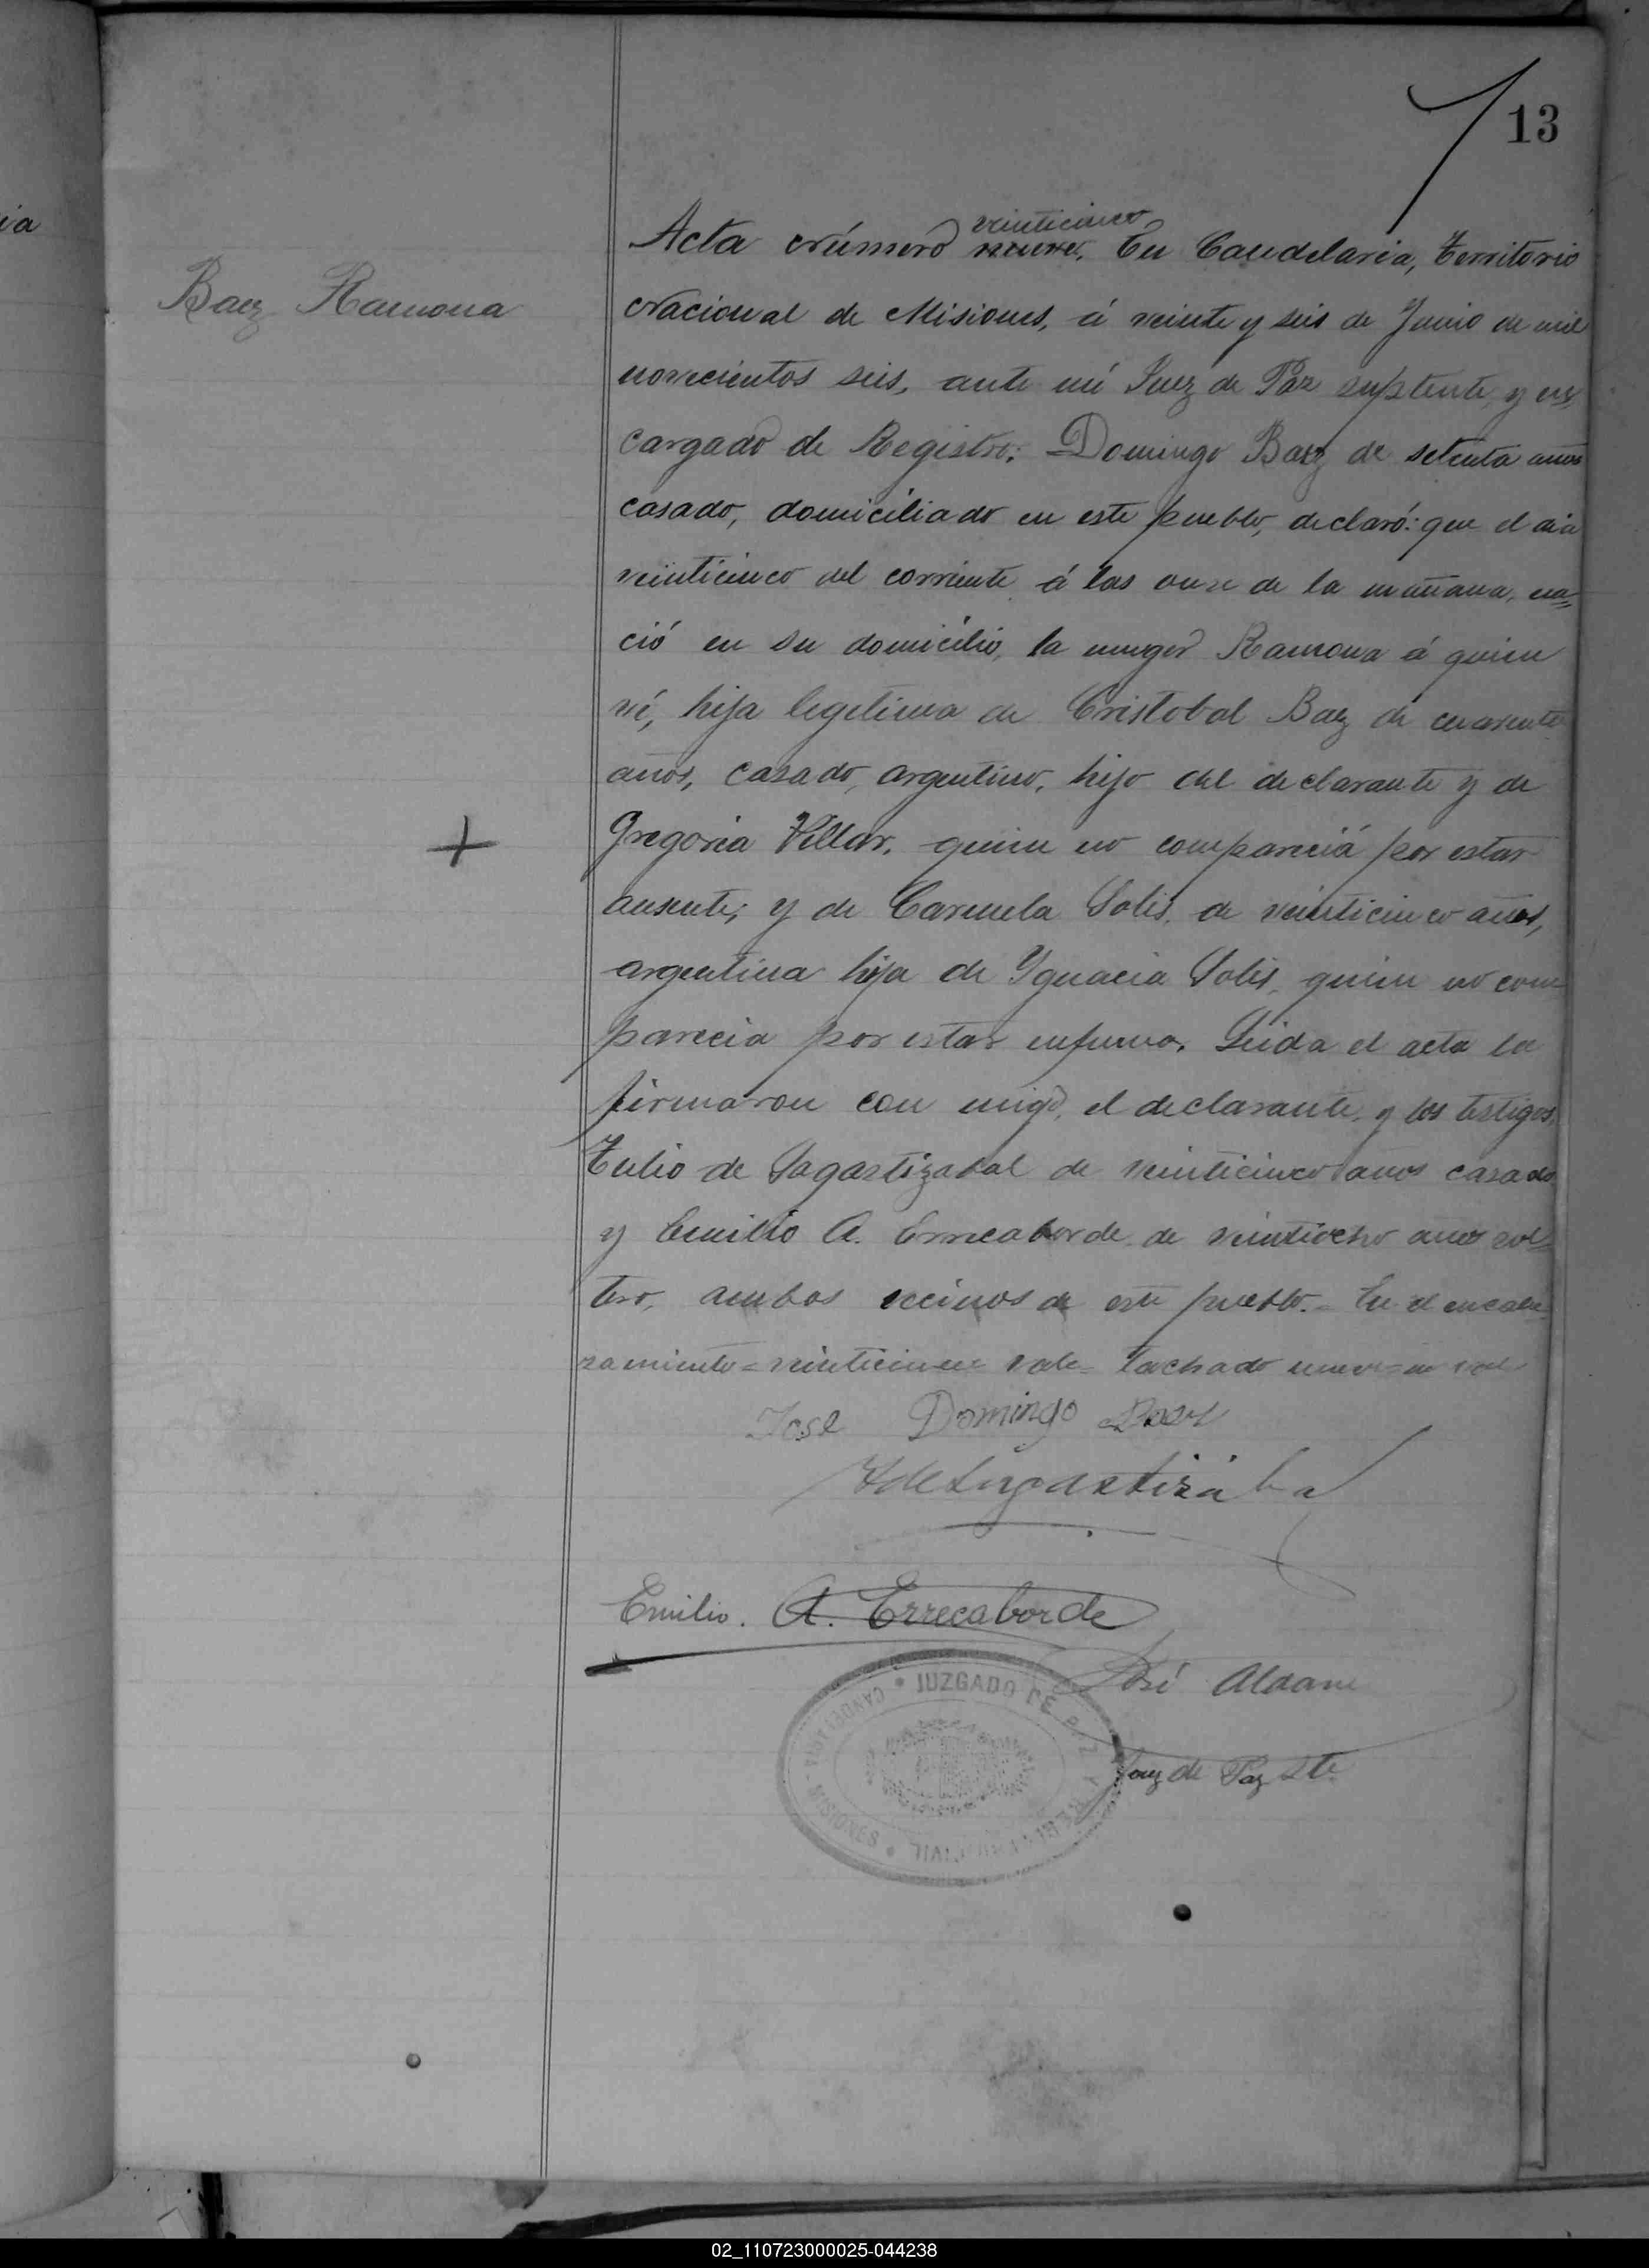 13
ia
Baez Ramona
veinticinco
Acta número nueve. En Candelaria, Territorio
Nacional de Misiones, á veinte y seis de Junio de mil
novecientos seis, ante mi Juez de Paz suplente, y en
cargado de Registro: Domingo Baez de setenta años
casado, domiciliado en este pueblo, declaró: que el dia
veinticinco del corriente á las onze de la mañana, na=
ció en su domicilio, la muger Ramona á quien
ví, hija legitima de Cristobal Baez de cuarenta
años, casado, argentino, hijo del declarante y de
Gregoria Villar, quien no comparecia por estar
ausente; y de Carmela Solis, de veinticinco años,
argentina hija de Ygnacia Solis, quien no com
parecia por estar enferma. Leida el acta la
firmaron con migo, el declarante, y los testigos,
Tulio de Sagastizabal de veinticinco años casado
y Emilio A. Errecaborde de veintiocho años sol=
tero, ambos vecinos de este pueblo.= En el encabe
zamiento = veinticinco vale= tachado nueve= no vale
José Domingo Baez
T de Sagastizábal
Emilio. A. Errecaborde
José Aldan
Juez de Paz Ste
JUZGADO DE PAZ Y REGISTRO CIVIL • MISIONES - CANDELARIA •
02_110723000025-044238